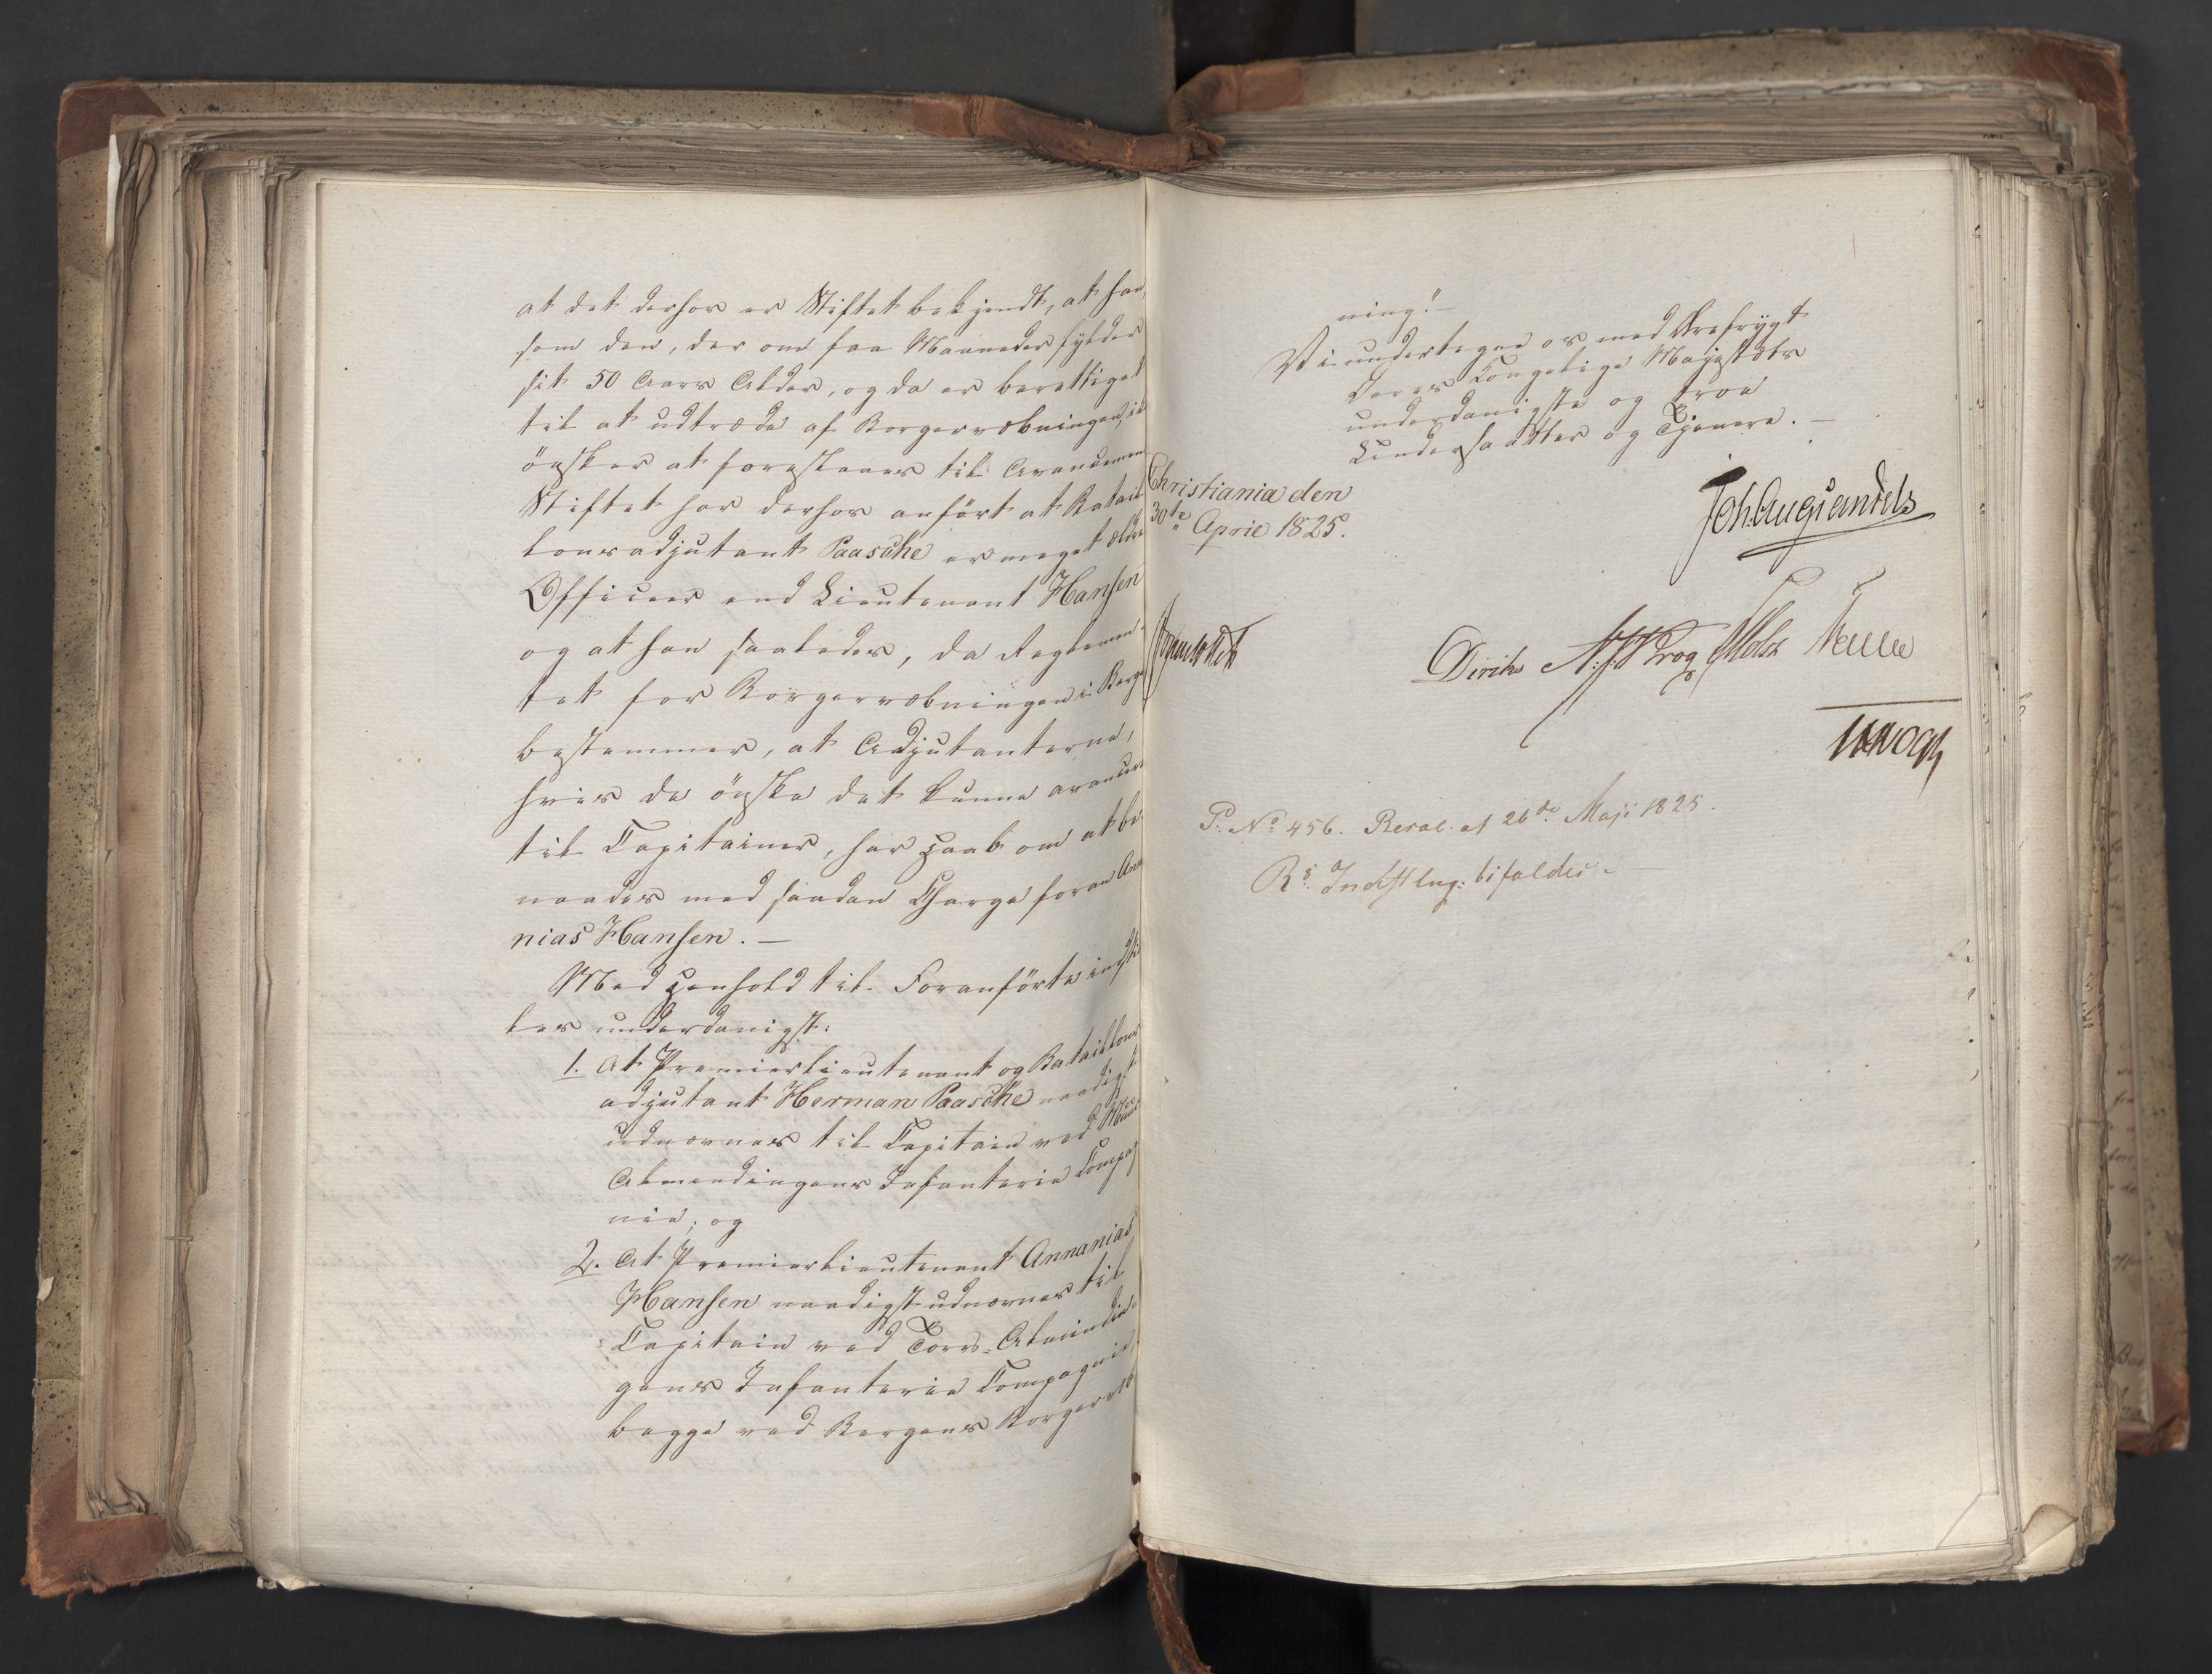 at det derhos er Stiftet bekjendt, at han,
som den, der om faa Maaneder fylder
sit 50 Aars Alder, og da er berettiget
til at udtræde af Borgervæbningen, ei
önsker at foreslaaes til Avancement
Stiftet har derhos anfört at Batail
lonsadjutant Paasche er meget ældre
Officeer end Lieutenant Hansen
og at han saaledes, da Reglemen-
tet for Borgervæbningen i Berge
bestemmer, at Adjutanterne,
hvis de önske det kunne avancere
til Capitainer, har Haab om at be-
naades med saadan Charge foran Ana
nias Hansen. —
Med Henhold til Foranförte indstil
les underdanigst:
1. At Premierlieutenant og Bataillons
adjutant Herman Paasche naadigst
udnævnes til Capitain ved
Almendingens Infanterie Compag
nie; og
2. At Premierlieutenant Annanias
Hansen naadigst udnævnes til
Capitain ved Torv-Almindin-
gens Infanterie Compagnie,
begge ved Bergens Borgervæb
ning." —
Vi undertegne os med Ærefrygt
Deres Kongelige Majestæts
underdanigste og troe
Undersaatter og Tjenere. —
Christiania den
30te April 1825.
Joh. Aug. Sandels
Diriks
Krog
Vogt
P. No 456. Resol. af 26de Maji 1825.
Rs Indstlng: bifaldes.